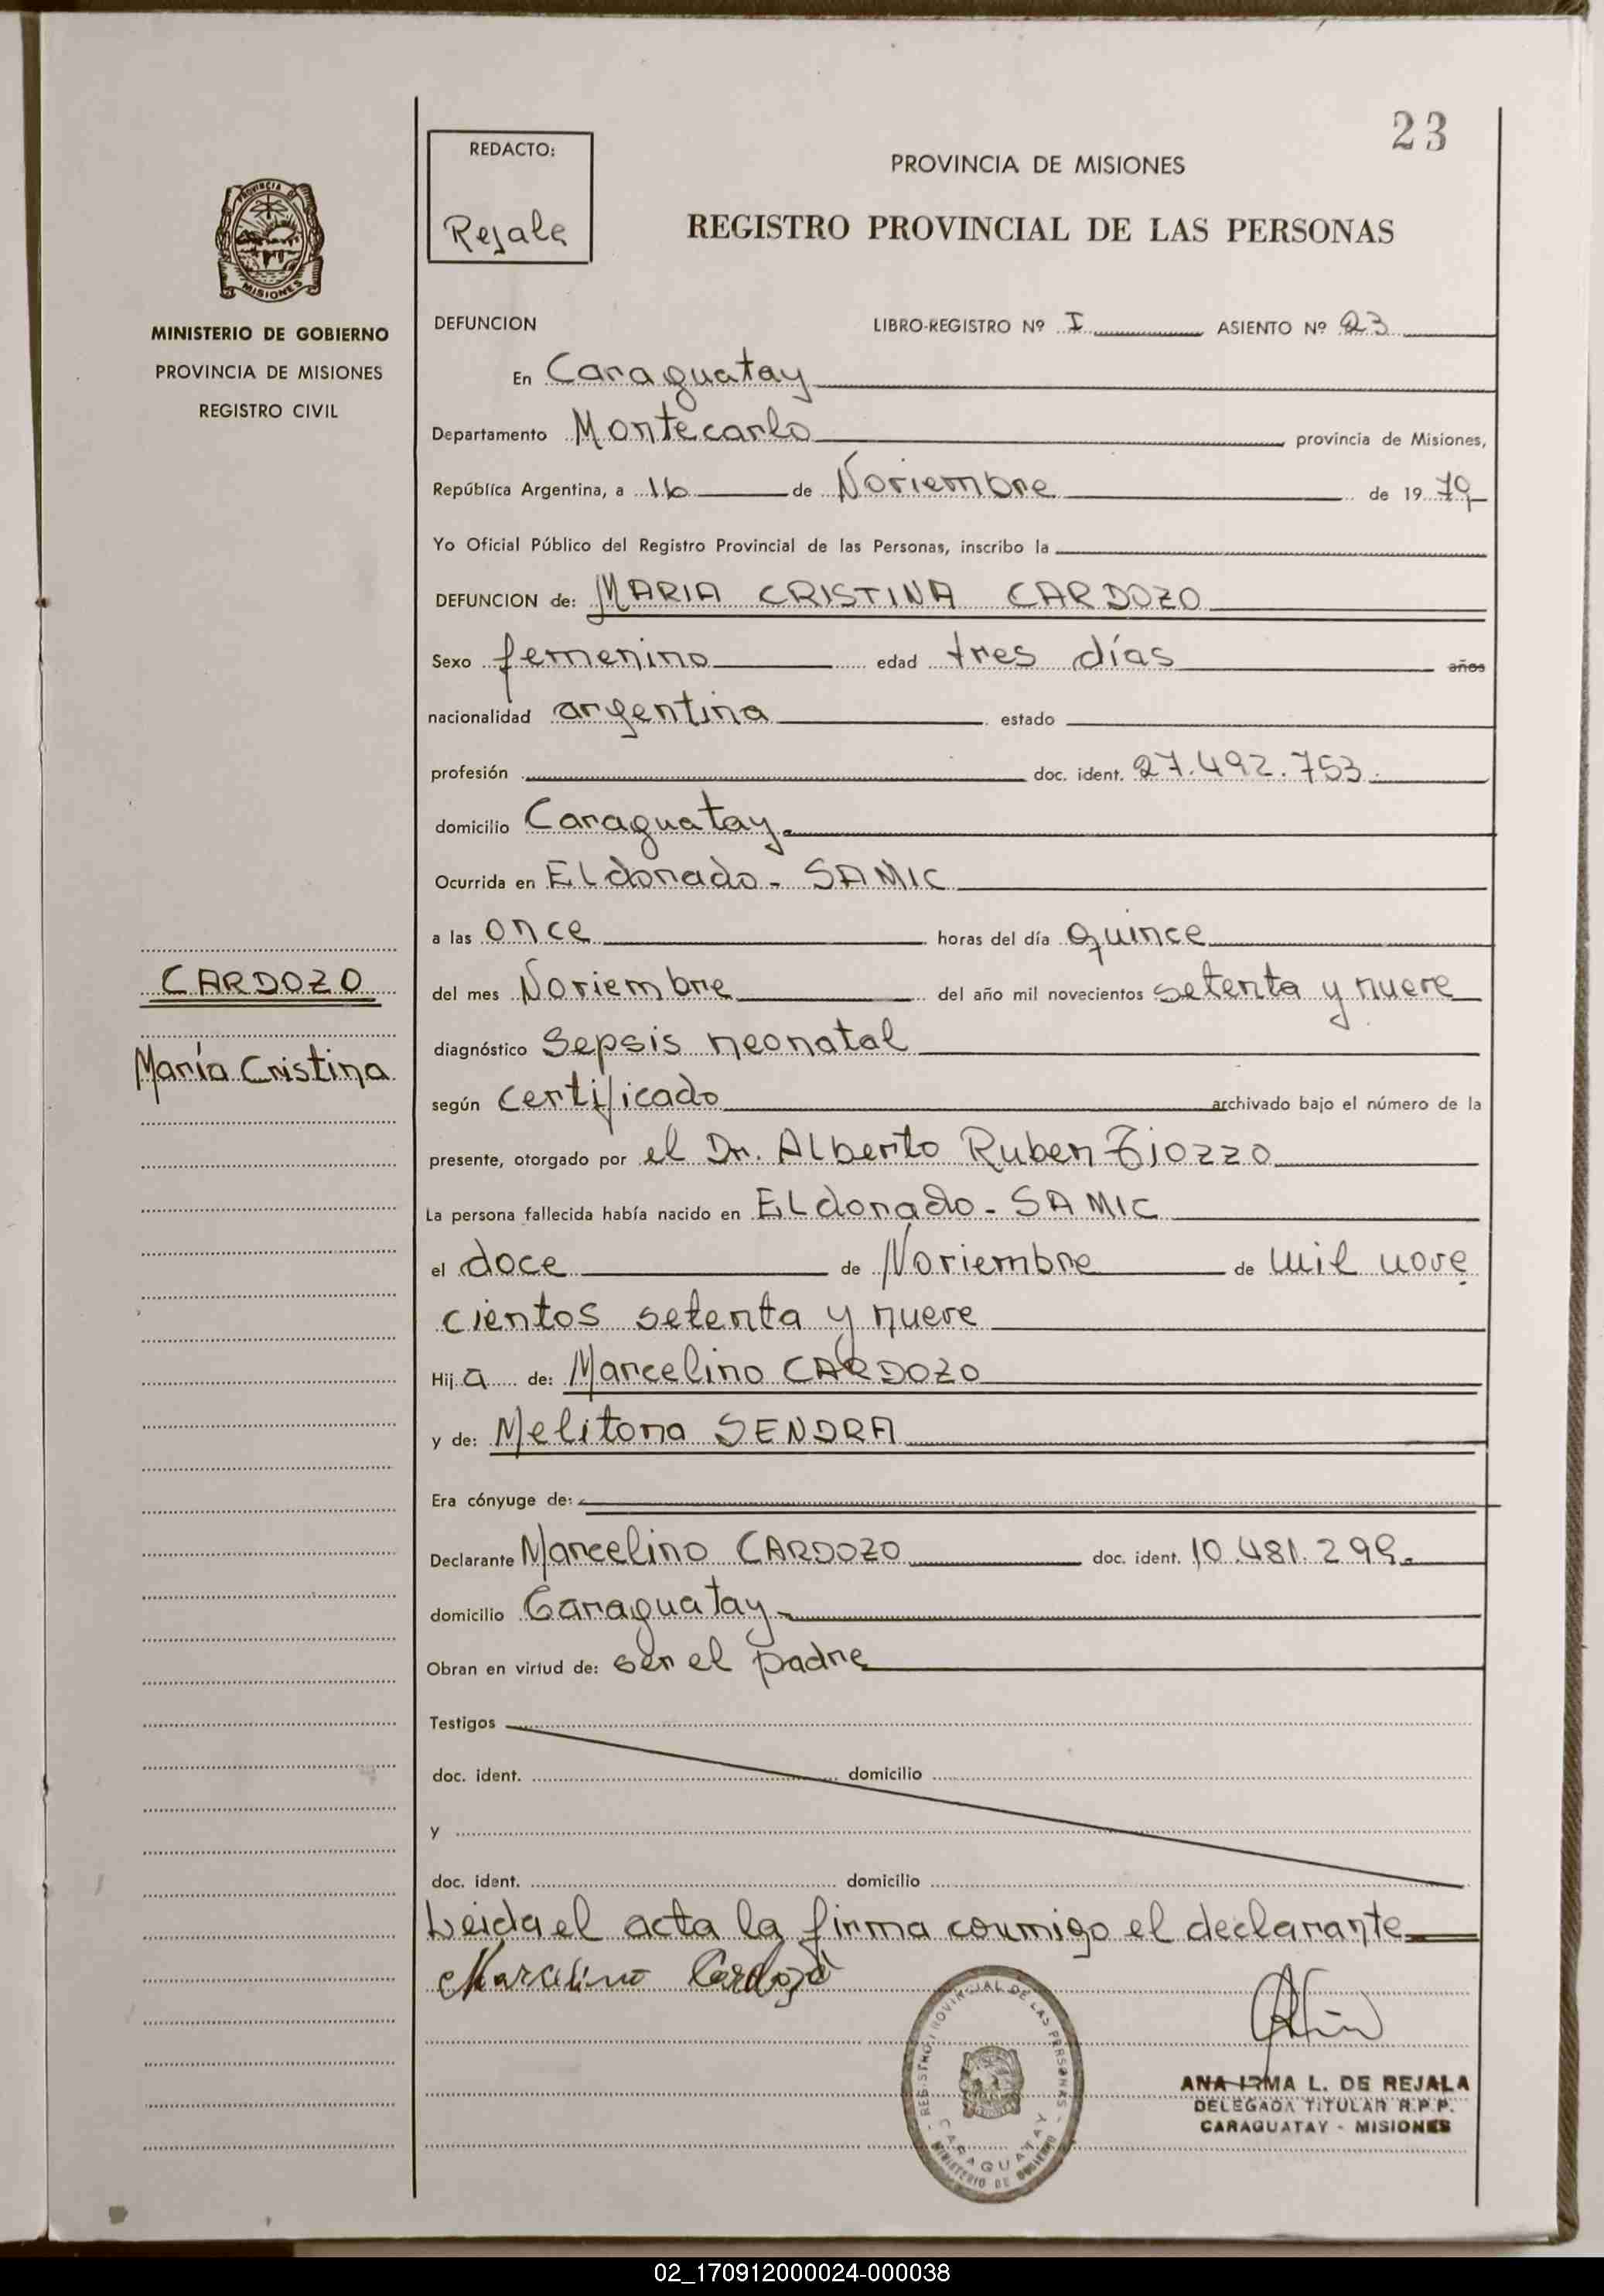 23
REDACTO:
Rejala
PROVINCIA DE MISIONES
REGISTRO PROVINCIAL DE LAS PERSONAS
PROVINCIA DE
MISIONES
MINISTERIO DE GOBIERNO
PROVINCIA DE MISIONES
REGISTRO CIVIL
DEFUNCION LIBRO-REGISTRO Nº I ASIENTO Nº 23
En Caraguatay
Departamento Montecarlo provincia de Misiones,
República Argentina, a 16 de Noviembre de 19 79
Yo Oficial Público del Registro Provincial de las Personas, inscribo la
DEFUNCION de: MARIA CRISTINA CARDOZO
Sexo femenino edad tres días años
nacionalidad argentina estado
profesión doc. ident. 27.492.753.
domicilio Caraguatay.
Ocurrida en ELdorado - SAMIC
a las once horas del día quince
CARDOZO
del mes Noviembre del año mil novecientos setenta y nueve
diagnóstico Sepsis neonatal
María Cristina
según certificado archivado bajo el número de la
presente, otorgado por el Dr. Alberto Ruben Tiozzo
La persona fallecida había nacido en ELdorado - SAMIC
el doce de Noviembre de mil nove
cientos setenta y nueve
Hij a de: Marcelino CARDOZO
y de: Melitona SENDRA
Era cónyuge de:
Declarante Marcelino CARDOZO doc. ident. 10.481.299.
domicilio Caraguatay
Obran en virtud de: ser el padre
Testigos
doc. ident. domicilio
y
doc. ident. domicilio
Leida el acta la firma conmigo el declarante
Marcelino Cardozo
REGISTRO PROVINCIAL DE LAS PERSONAS
CARAGUATAY
MINISTERIO DE GOBIERNO
ANA IRMA L. DE REJALA
DELEGADA TITULAR R.P.P.
CARAGUATAY - MISIONES
02_170912000024-000038